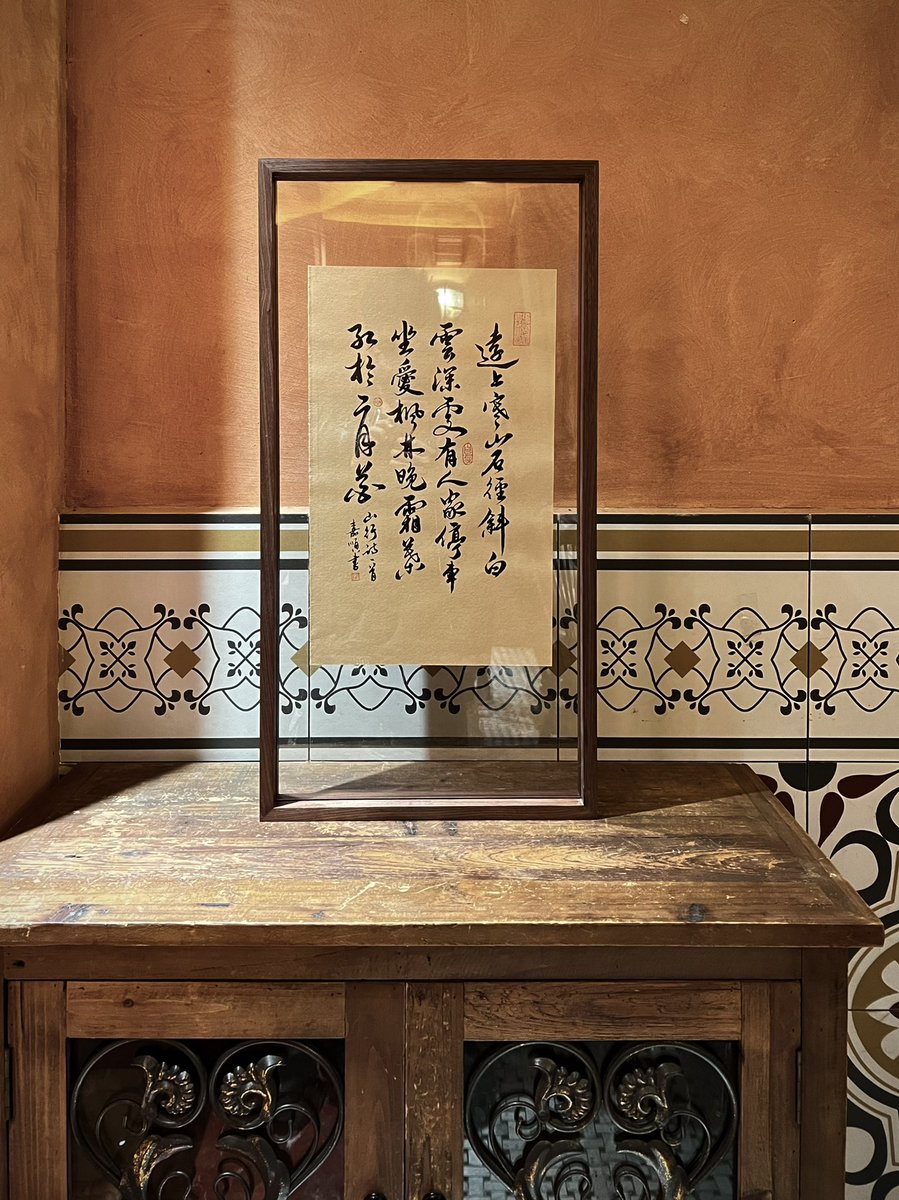 遠上寒山石徑斜白
雲深處有人家停車
坐愛楓林晚霜葉
紅於二月花
山行詩一首
嘉順書